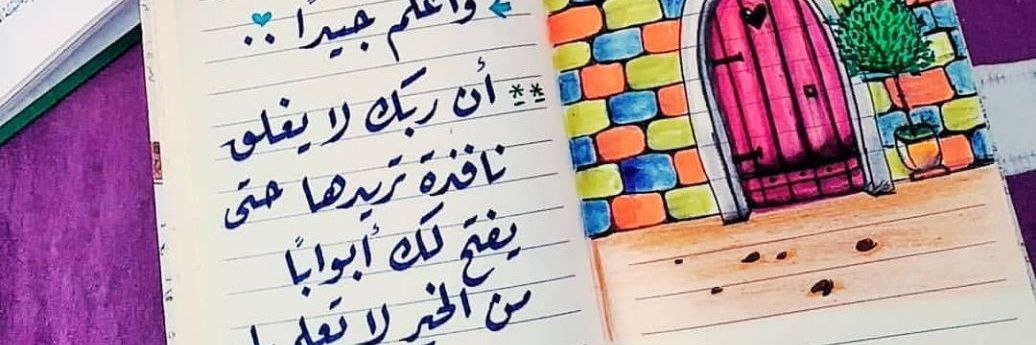 واعلم جيداً ..
أن ربك لا يغلق
نافذة تريدها حتى
يفتح لك أبواباً
من الخير لا تعلمها